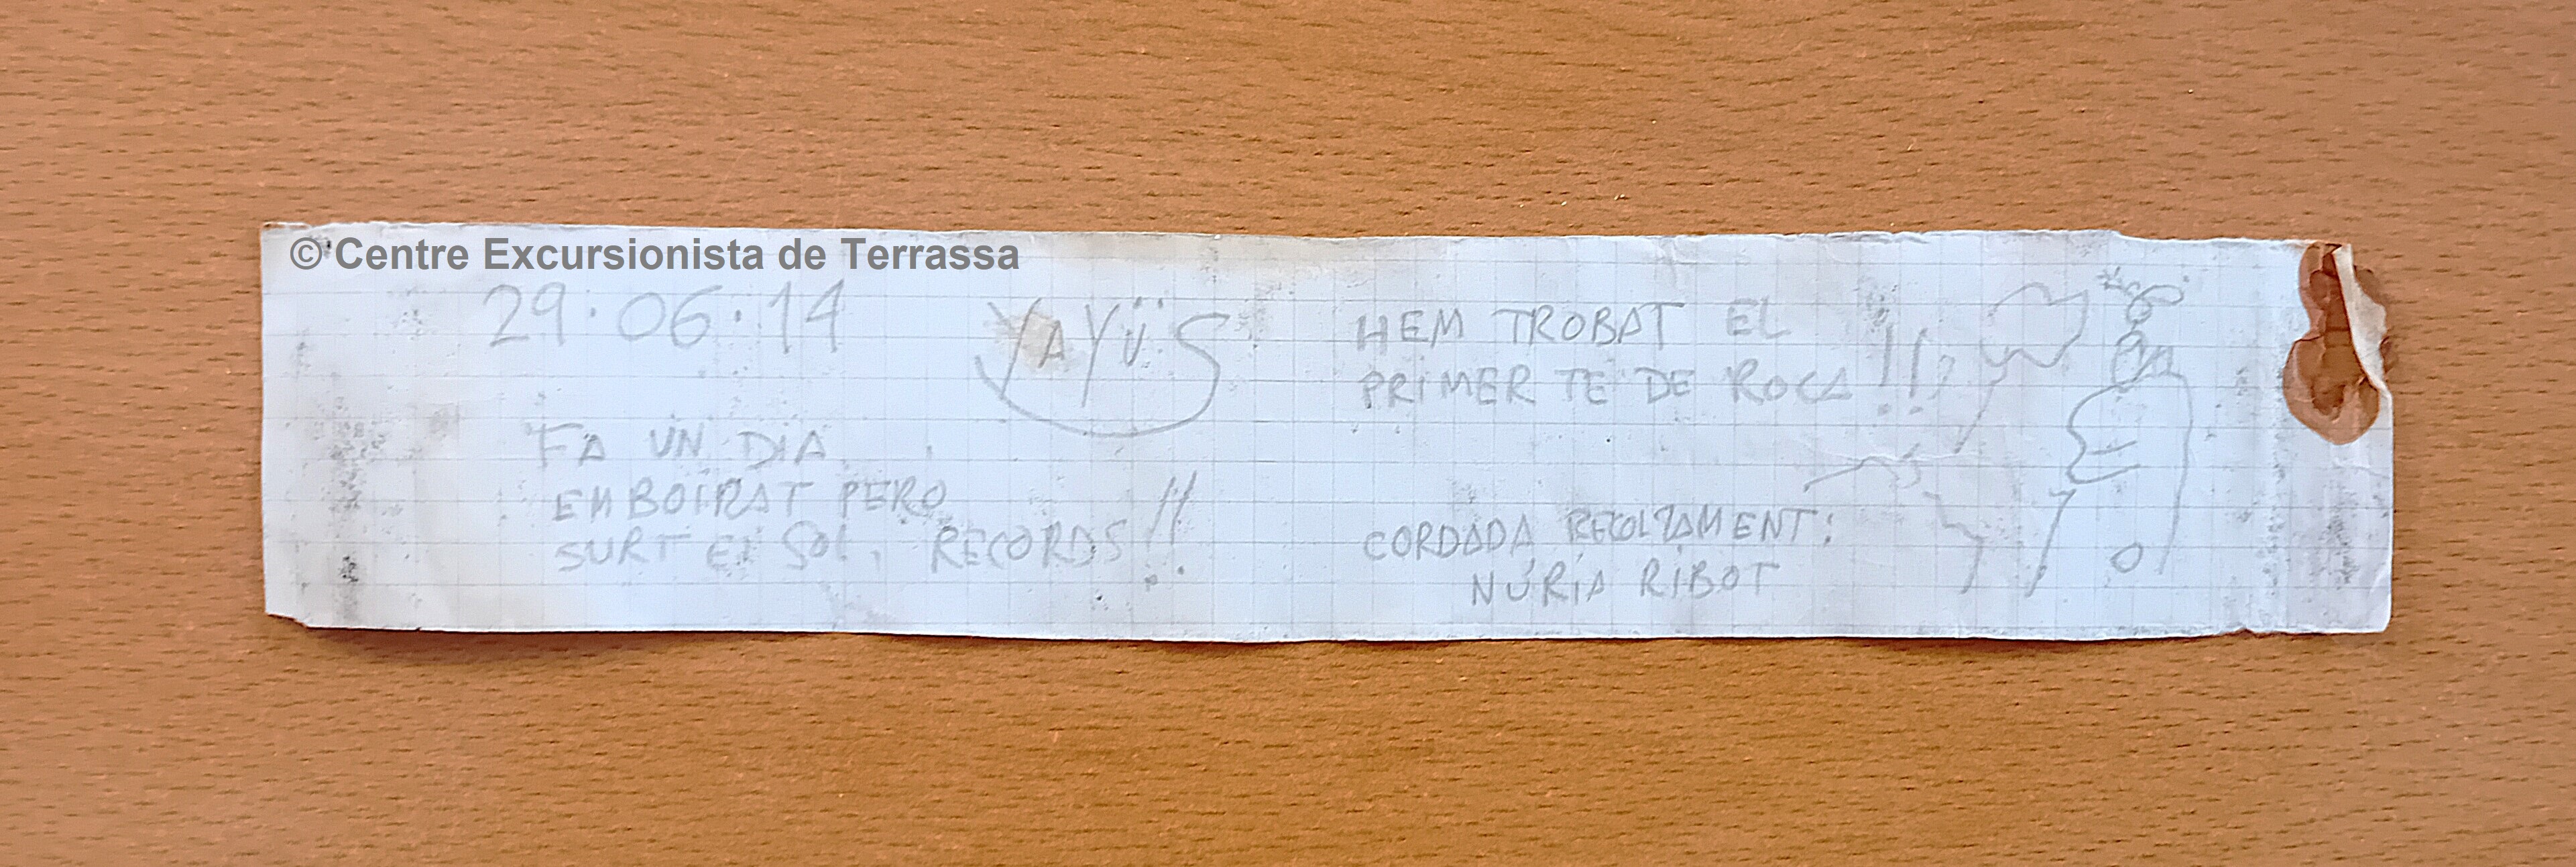 © Centre Excursionista de Terrassa
29·06·14
YAYÜS
FA UN DIA
EMBOIRAT PERO
SURT EL SOL, RECORDS!!
HEM TROBAT EL
PRIMER TE DE ROCA!!
CORDADA RECOLZAMENT:
NÚRIA RIBOT